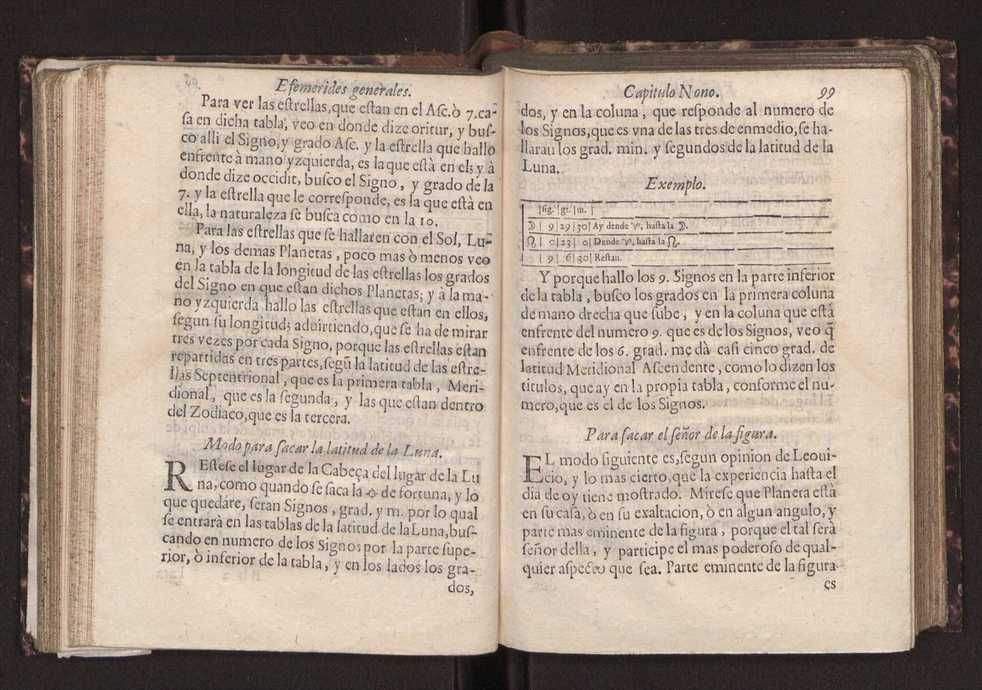 Efemerides generales.
Para ver las estrellas, que estan en el Asc. ò 7. ca-
sa en dicha tabla, veo en donde dize oritur, y bus-
co alli el Signo, y grado Asc. y la estrella que hallo
enfrente à mano yzquierda, es la que està en el; y à
donde dize occidit, busco el Signo, y grado de la
7. y la estrella que le corresponde, es la que està en
ella, la naturaleza se busca como en la 10.
Para las estrellas que se hallaren con el Sol, Lu-
na, y los demas Planetas, poco mas ò menos veo
en la tabla de la longitud de las estrellas los grados
del Signo en que estan dichos Planetas; y à la ma-
no yzquierda hallo las estrellas que estan en ellos,
segun su longitud; advirtiendo, que se ha de mirar
tres vezes por cada Signo, porque las estrellas estan
repartidas en tres partes, segũ la latitud de las estre-
llas Septentrional, que es la primera tabla, Meri-
dional, que es la segunda, y las que estan dentro
del Zodiaco, que es la tercera.
Modo para sacar la latitud de la Luna.
REstese el lugar de la Cabeça del lugar de la Lu
na, como quando se saca la ⊕ de fortuna, y lo
que quedàre, seràn Signos, grad. y m. por lo qual
se entrarà en las tablas de la latitud de la Luna, bus-
cando en numero de los Signos por la parte supe-
rior, ò inferior de la tabla, y en los lados los gra-
dos,
Capitulo Nono. 99
dos, y en la coluna, que responde al numero de
los Signos, que es vna de las tres de enmedio, se ha-
llaràn los grad. min. y segundos de la latitud de la
Luna.
Exemplo.
|sig.|gr.|m.|
☽| 9|29|30| Ay dende ♈, hasta la ☽.
☊| 0|23| 0| Dende ♈, hasta la ☊.
| 9| 6|30| Restan.
Y porque hallo los 9. Signos en la parte inferior
de la tabla, busco los grados en la primera coluna
de mano drecha que sube, y en la coluna que està
enfrente del numero 9. que es de los Signos, veo q̃
enfrente de los 6. grad. me dà casi cinco grad. de
latitud Meridional Ascendente, como lo dizen los
titulos, que ay en la propia tabla, conforme el nu-
mero, que es el de los Signos.
Para sacar el señor de la figura.
EL modo siguiente es, segun opinion de Leoui-
cio, y lo mas cierto, que la experiencia hasta el
dia de oy tiene mostrado. Mirese que Planeta està
en su casa, ò en su exaltacion, ò en algun angulo, y
parte mas eminente de la figura, porque el tal serà
señor della, y participe el mas poderoso de qual-
quier aspecto que sea. Parte eminente de la figura
es